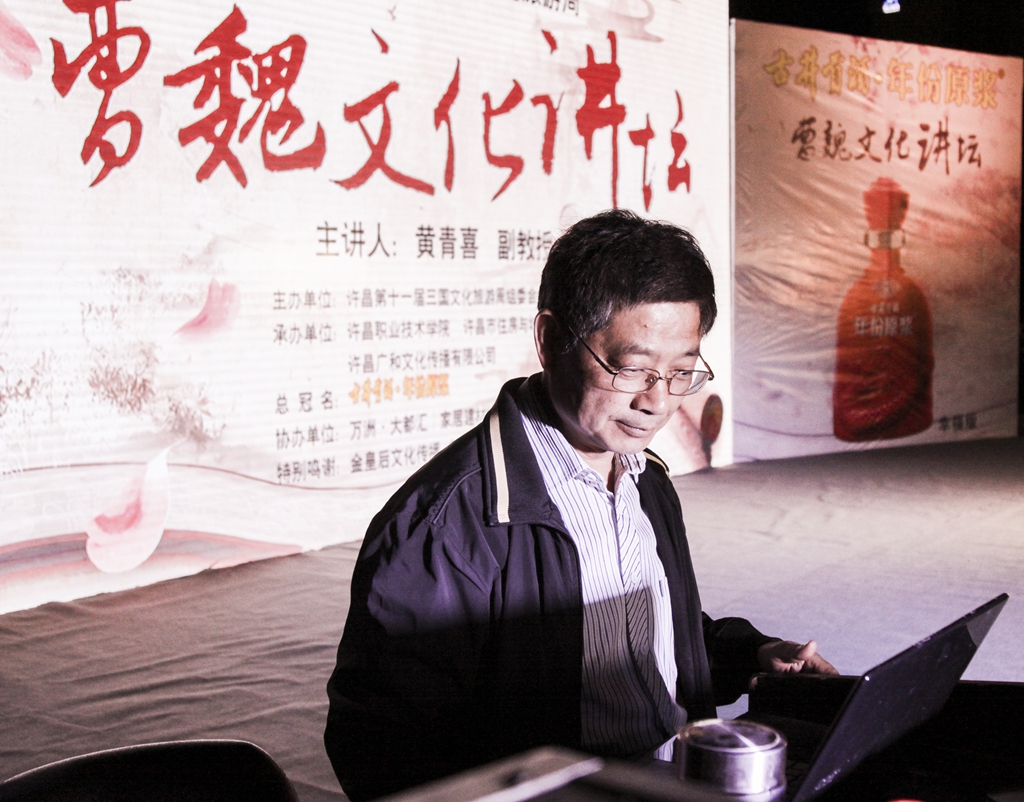 旅游局
曹魏文化讲坛
主讲人: 黄青喜 副教授
主办单位: 许昌第十一届三国文化旅游周组委会
承办单位: 许昌职业技术学院 许昌市住房与
许昌广和文化传播有限公司
总 冠 名: 古井贡酒·年份原浆
协办单位: 万洲·大都汇 家居建
特别鸣谢: 金皇后文化传播
古井贡酒·年份原浆®
曹魏文化讲坛
年份原浆
幸福版